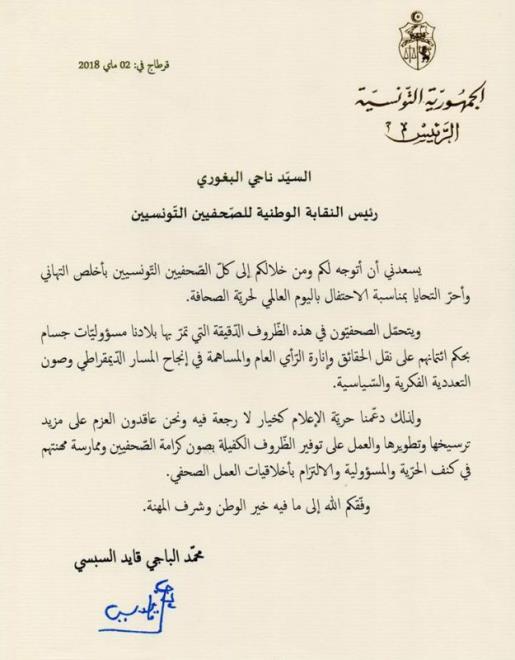 الجمهوريّة التّونسيّة
الرّئيس
قرطاج في: 02 ماي 2018
السيّد ناجي البغوري
رئيس النقابة الوطنية للصّحفيين التّونسيين
يسعدني أن أتوجه لكم ومن خلالكم إلى كلّ الصّحفيين التّونسيين بأخلص التهاني
وأحرّ التحايا بمناسبة الاحتفال باليوم العالمي لحريّة الصحافة.
ويتحمّل الصحفيّون في هذه الظّروف الدّقيقة التي تمرّ بها بلادنا مسؤوليّات جسام
بحكم ائتمانهم على نقل الحقائق وإنارة الرّأي العام والمساهمة في إنجاح المسار الدّيمقراطي وصون
التعددية الفكرية والسّياسية.
ولذلك دعّمنا حريّة الإعلام كخيار لا رجعة فيه ونحن عاقدون العزم على مزيد
ترسيخها وتطويرها والعمل على توفير الظّروف الكفيلة بصون كرامة الصّحفيين وممارسة مهنتهم
في كنف الحرّية والمسؤولية والالتزام بأخلاقيات العمل الصحفي.
وفّقكم الله إلى ما فيه خير الوطن وشرف المهنة.
محمّد الباجي قايد السبسي